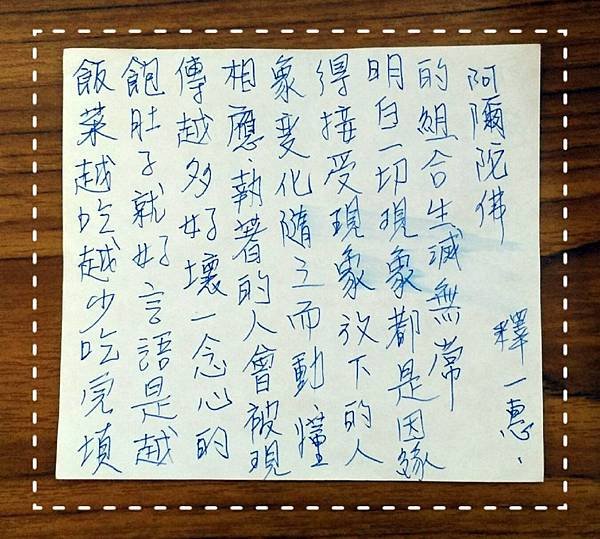 飯菜越吃越少吃完填
飽肚子就好言語是越
傳越多好壞一念心的
相應執著的人會被現
象變化隨之而動懂
得接受現象放下的人
明白一切現象都是因緣
的組合生滅無常
阿彌陀佛
釋一惠、